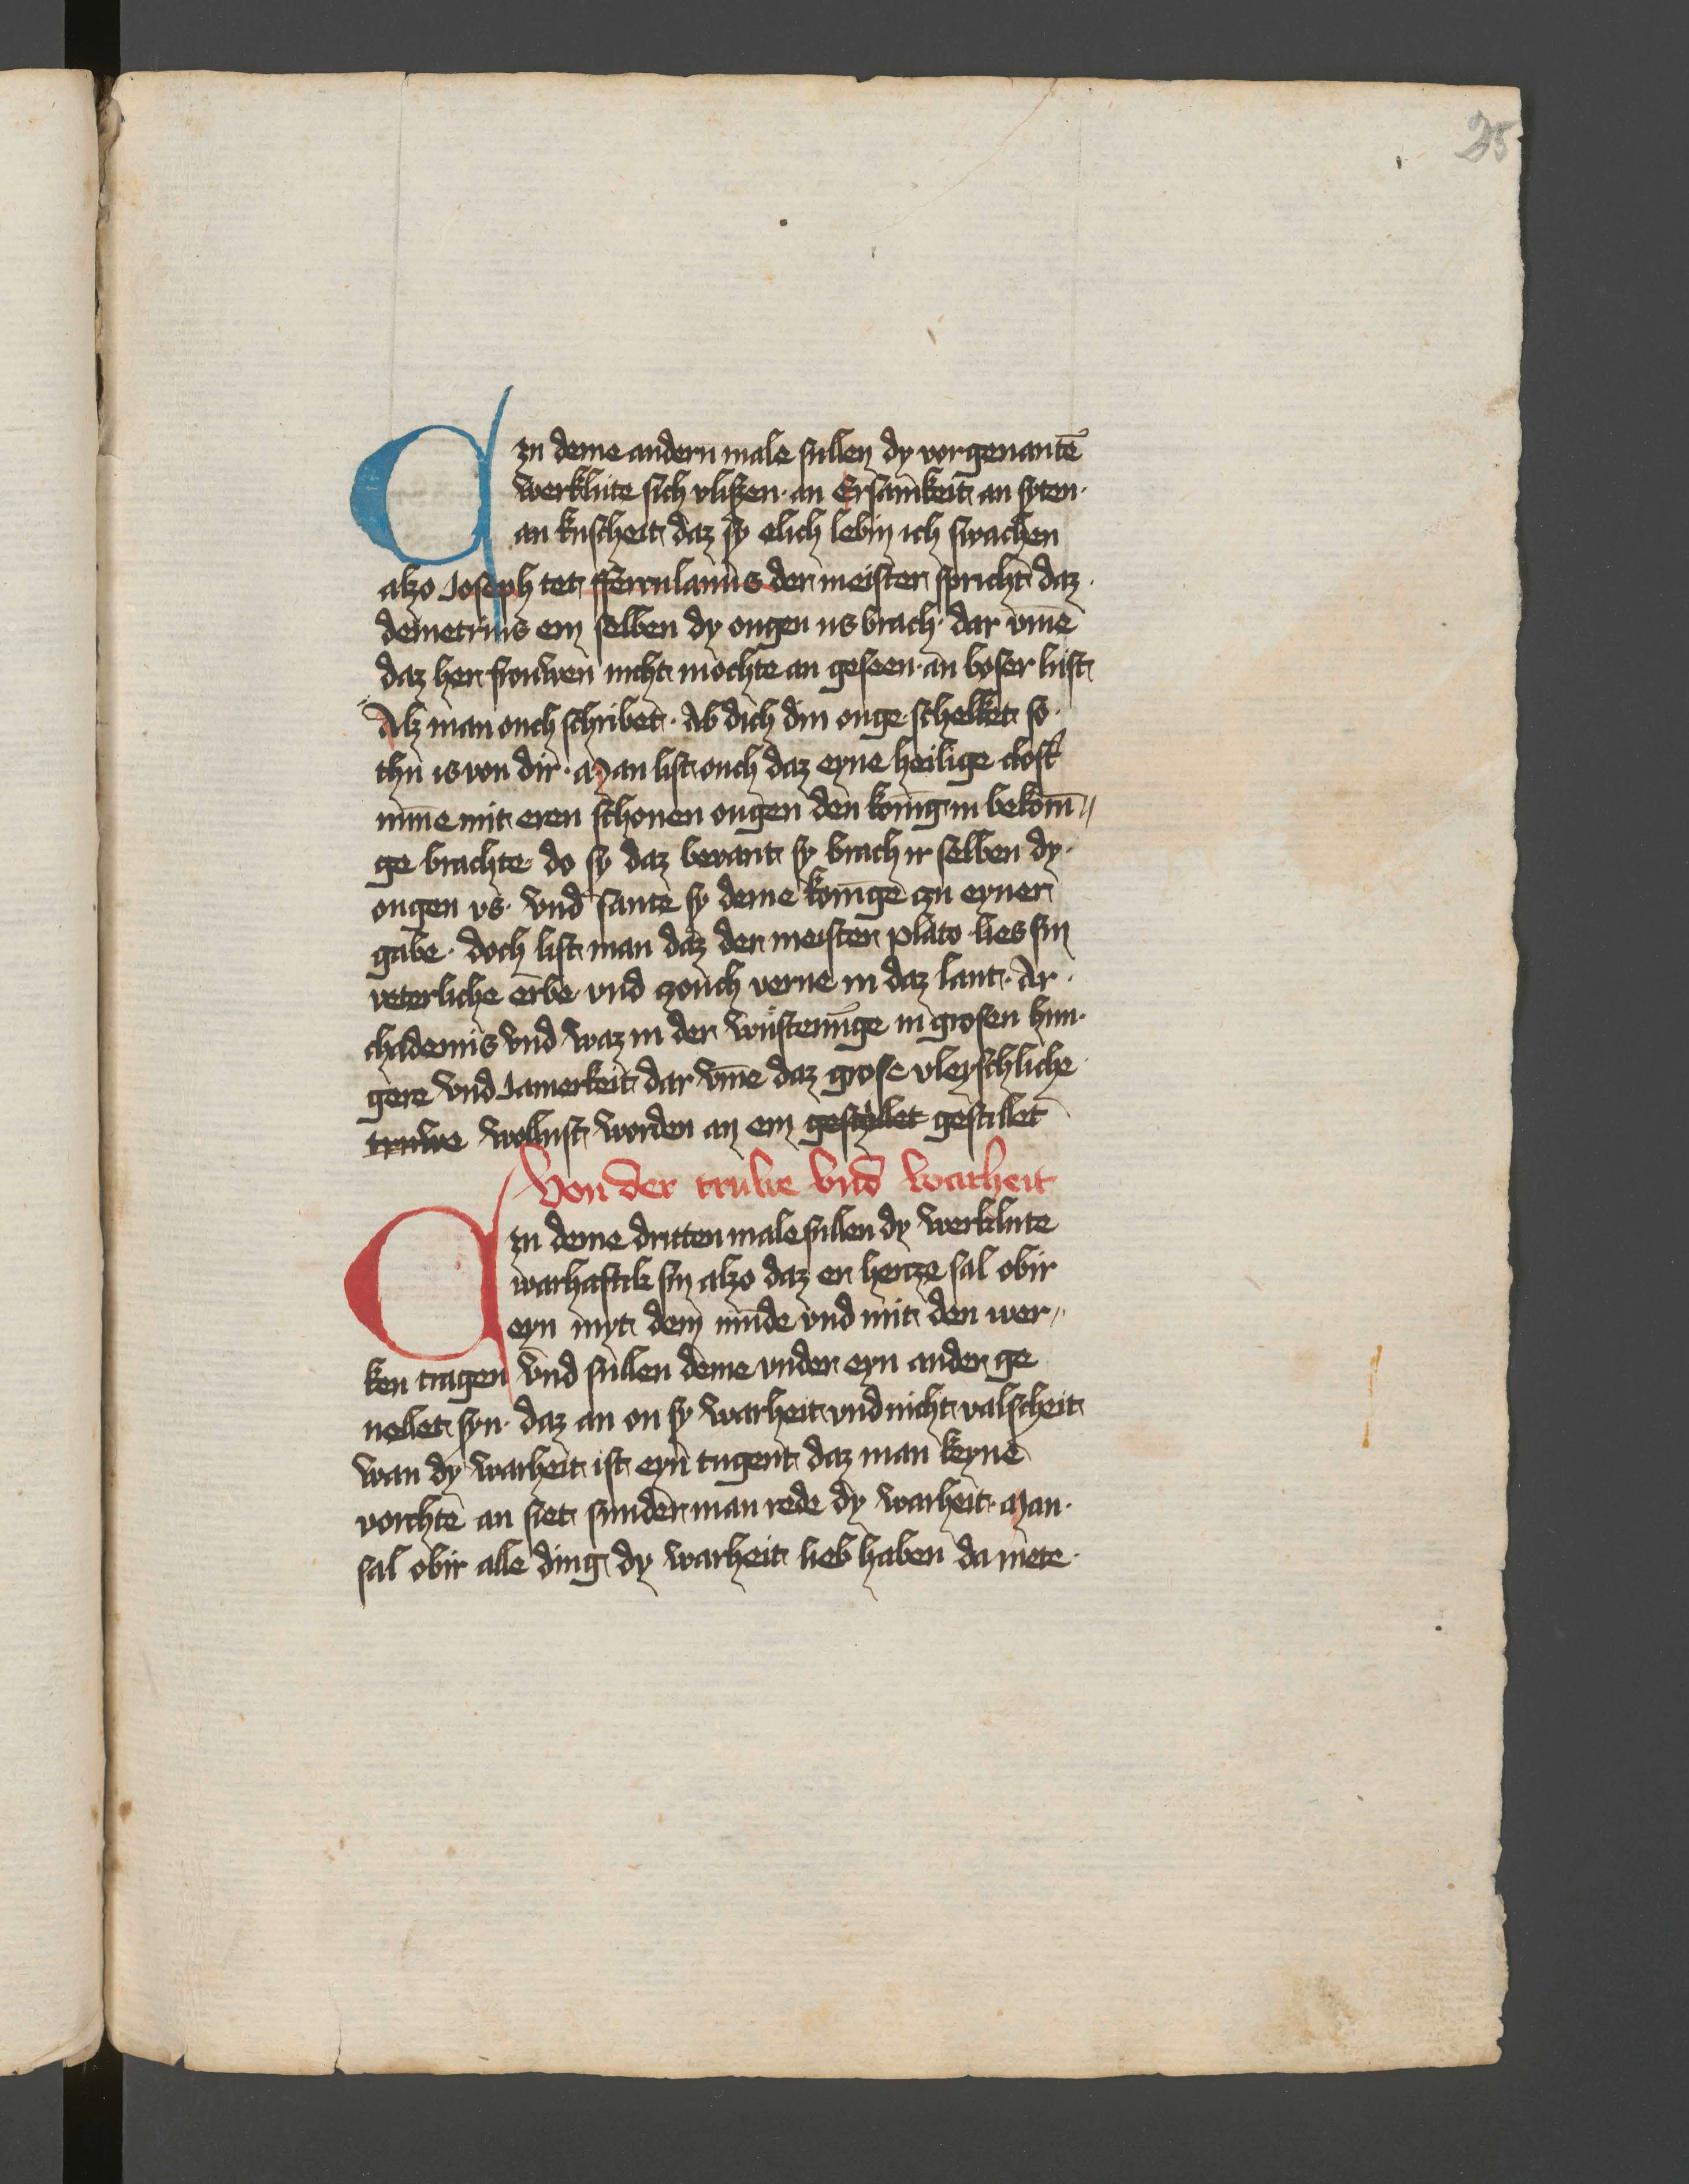 25
Czu deme andern male sullen dy vorgenantē
werklute sich vlißen· an Ersamkeit an syten·
an kuscheit daz sy elich lebin ich swachen
alzo Joseph tet fferculanus der meister spricht daz·
demetrius em selben dy ougen us brach· dar vm̄e
daz her frouwen nicht mochte an geseen· an boser lust
Alz man ouch schribet· Ab dich din ouge schelket so·
thu is von dir· Man list ouch daz eyne heilige clost
nūne mit eren schonen ougen den konig in bekom̄
ge brachte· do sy daz bevant sy brach ir selben dy·
ougen vs· vnd sante sy deme konīge czu eyner
gabe· doch list man daz der meister plato lies sin
veterliche erbe vnd czouch verne in daz lant· Ar·
chademis vnd waz in der wustenūge in grosen hun·
gere vnd Jamerkeit dar vm̄e daz grose vleyschliche
truwe wollust worden an em gestyllet gestillet
Von der truwe vnd warheit
Czu deme dritten male sullen dy werklute
warhaftik sin alzo daz er hercze sal obir
eyn myt dem mūde vnd mit den wer
ken tragen vnd sullen deme vnder eyn ander ge
nellet syn· daz an on sy warheit vnd nicht valscheit
wan dy warheit ist eyn tugent daz man keyne
vorchte an siet sunder man rede dy warheit· Man·
sal obir alle ding dy warheit lieb haben da mete·